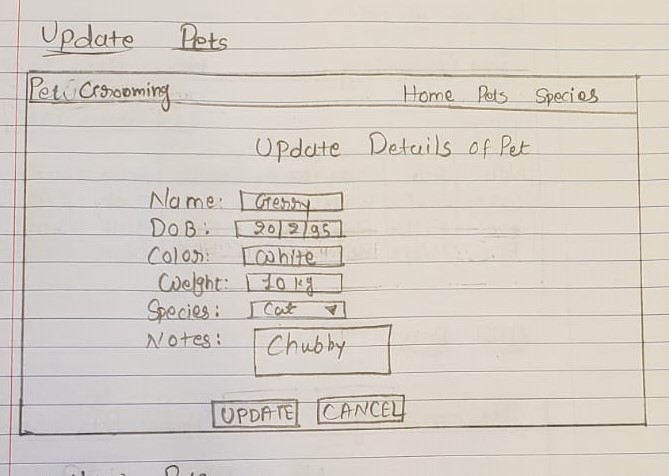 Update Pets
Pet Grooming Home Pets Species
Update Details of Pet
Name: Gerry
DoB: 20/2/95
Color: White
Weight: 10 kg
Species: Cat
Notes: Chubby
UPDATE CANCEL